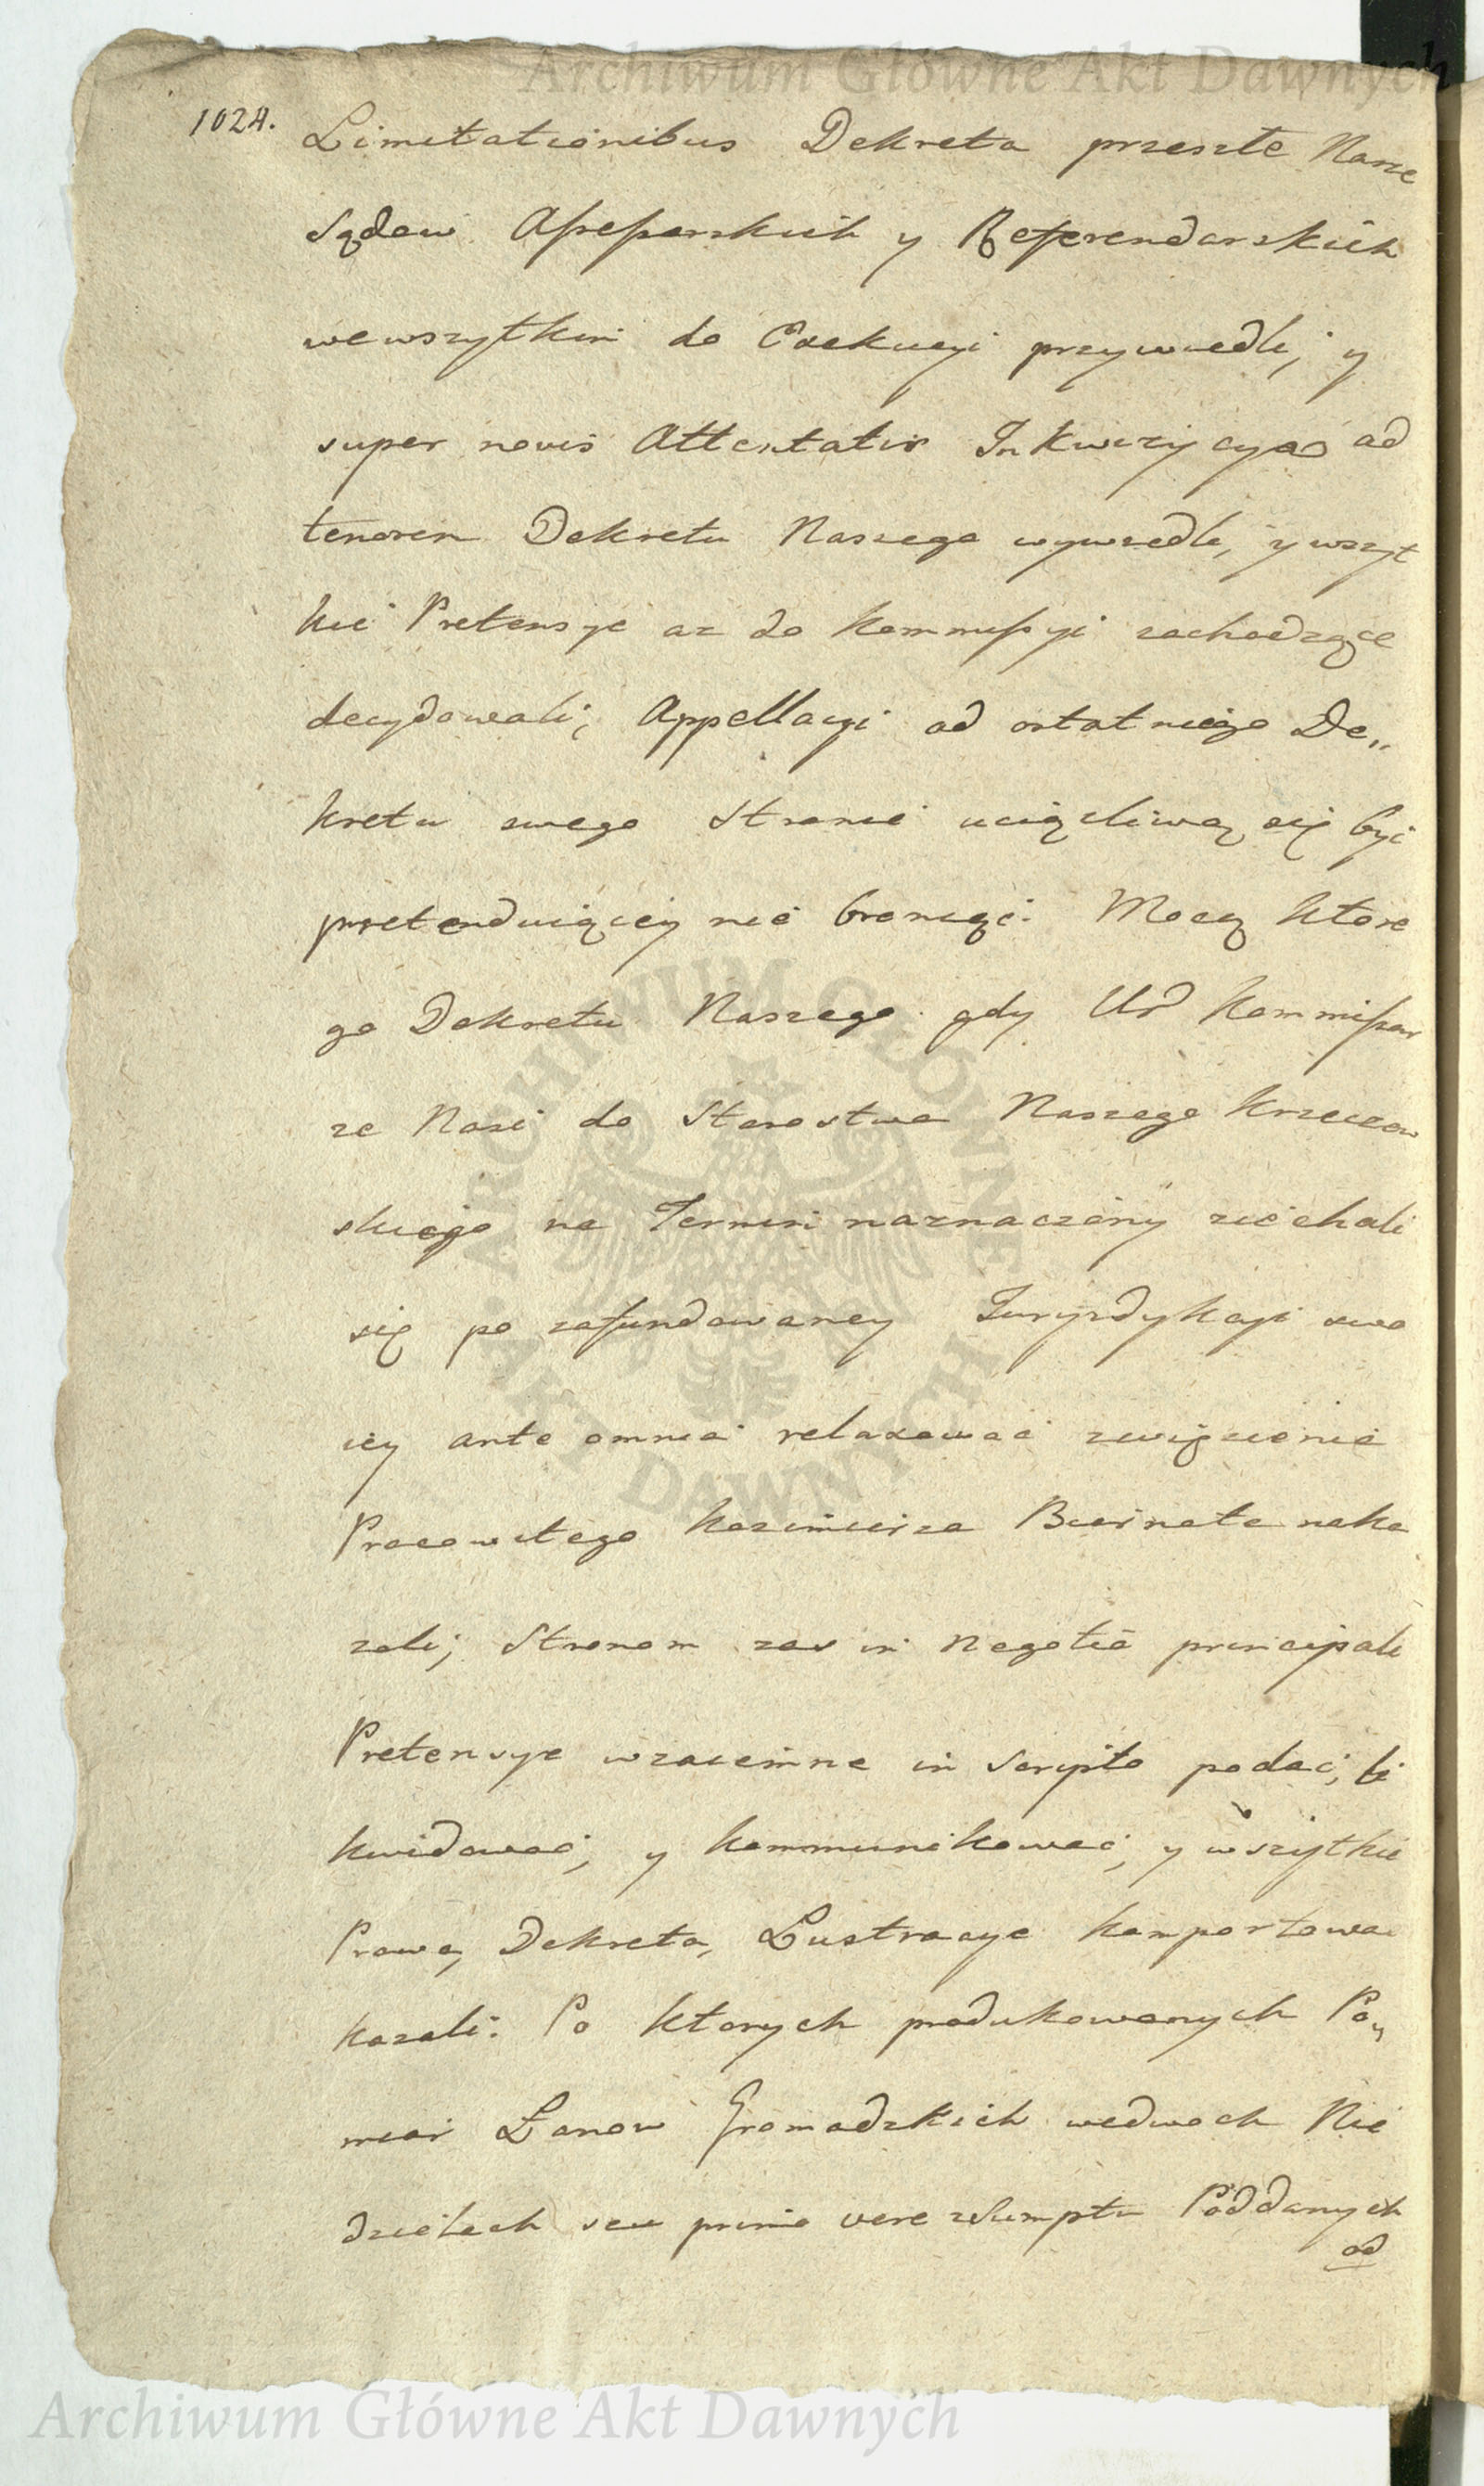 Archiwum Główne Akt Dawnych
1024.
Limitationibus Dekreta przeszłe Nasze
Sądow Assessorskich y Referendarskich
wewszytkim do Exekucyi przywiedli, y
super novis Attentatis Inkwizycyą ad
tenorem Dekretu Naszego wywiedli, y wszyt
kie Pretensye az do Kommissyi zachodzące
decydowali, Appellacyi od ostatniego De„
kretu swego Stronie uciązliwą się byc
pretenduiącey nie broniąc. Mocą ktore
go Dekretu Naszego gdy Ur Kommissar
ze Nasi do Starostwa Naszego Krzeczow
skiego na Termin naznaczony ziechali
się po zafundowaney Juryzdykcyi swo
iey ante omnia relaxowac zwięzienia
Pracowitego Kazimierza Biernata naka
zali; Stronom zas in Negotio principali
Pretensye wzaiemne in Scripto podać, li
kwidować, y kommunikować, y wszytkie
Prawa, Dekreta, Lustracye komportowac
kazali. Po ktorych produkowanych Po„
miar Łanow Gromadzkich wedwoch Nie
dzielach seu primo vere zSumptu Poddanych
od
ARCHIWUM GŁÓWNE AKT DAWNYCH
Archiwum Główne Akt Dawnych